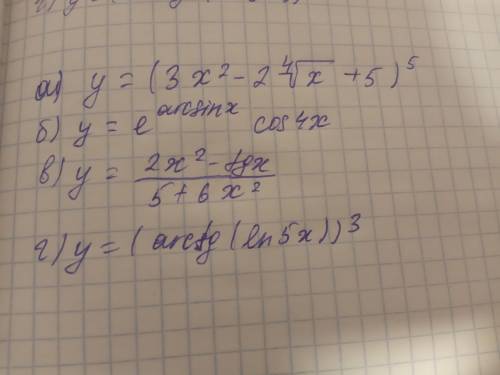 а) y = (3x² - 2∜x + 5)⁵
б) y = e^(arcsinx) cos4x
в) y = (2x² - tgx)/(5 + 6x²)
г) y = (arctg(ln5x))³